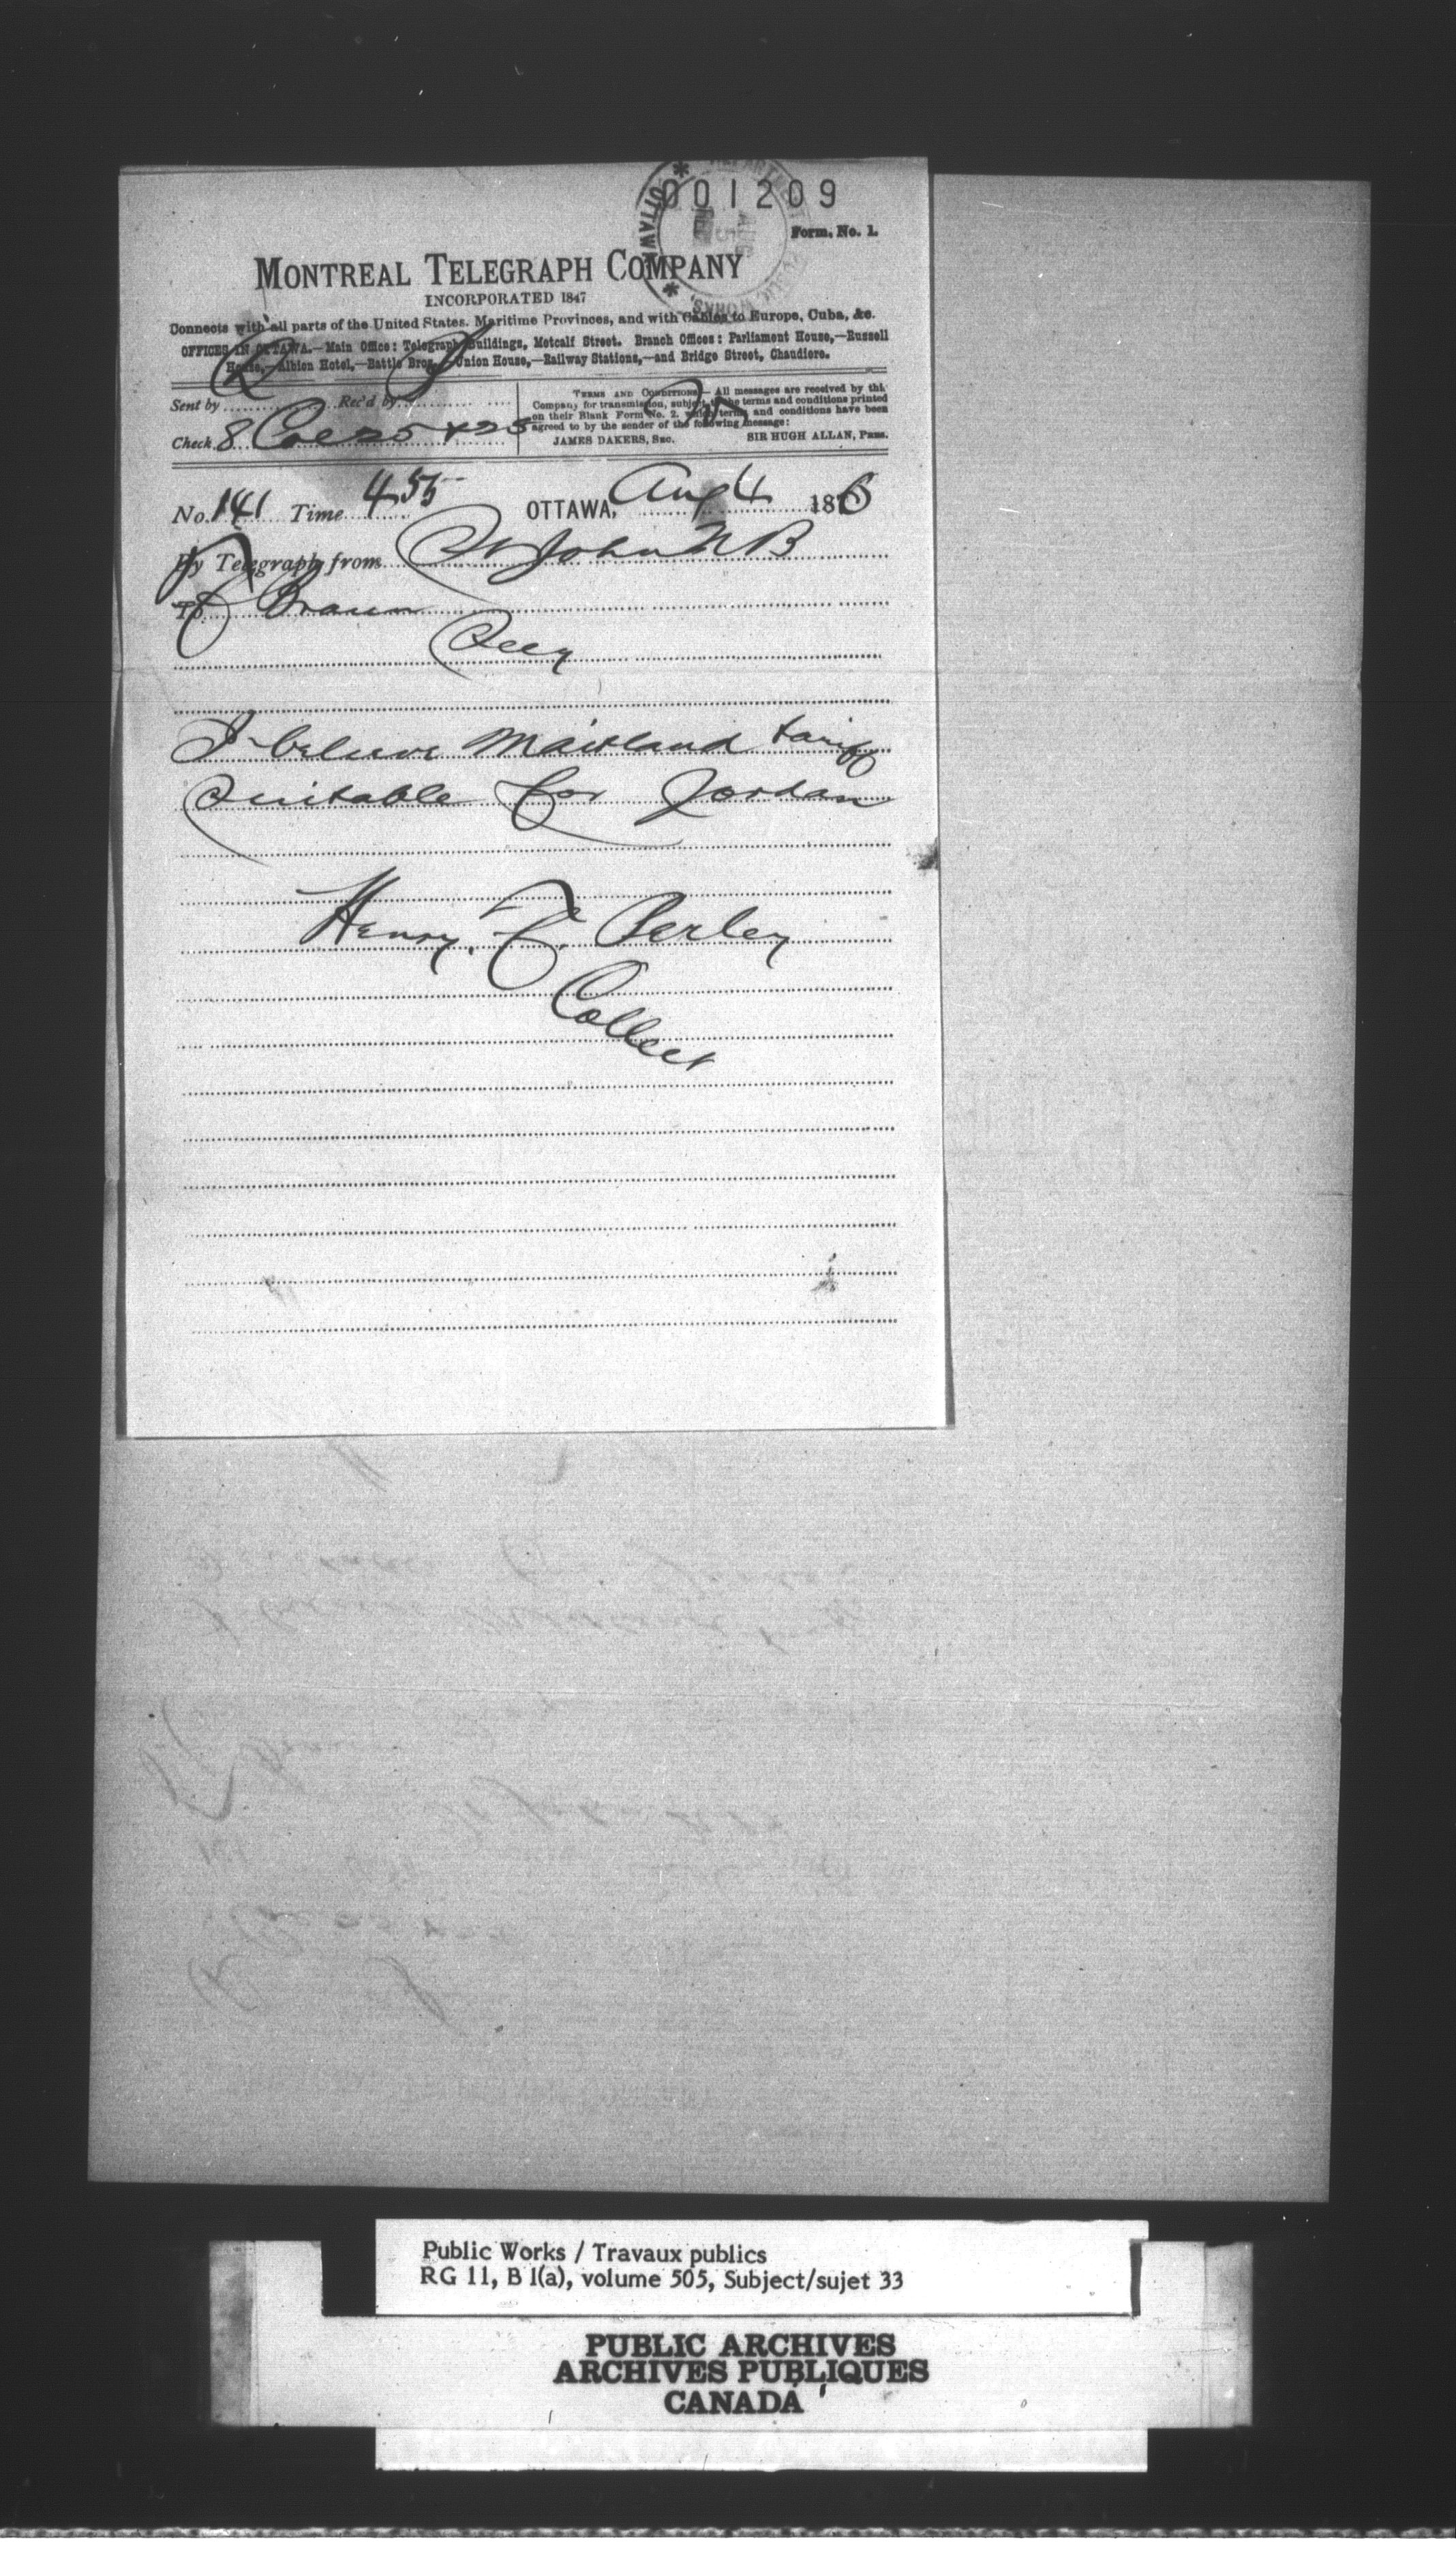 001209
OTTAWA
AUG 5
WORKS,
Form. No. 1.
MONTREAL TELEGRAPH COMPANY
INCORPORATED 1847
Connects with all parts of the United States. Maritime Provinces, and with Cables to Europe, Cuba, &c.
OFFICES IN OTTAWA.—Main Office: Telegraph Buildings, Metcalf Street. Branch Offices: Parliament House,—Russell
House,—Albion Hotel,—Battle Bros.,—Union House,—Railway Stations,—and Bridge Street, Chaudiere.
Sent by Rec'd by
Check 8 Col 25 + 25
TERMS AND CONDITIONS—All messages are received by this
Company for transmission, subject to the terms and conditions printed
on their Blank Form No. 2. which terms and conditions have been
agreed to by the sender of the following message:
JAMES DAKERS, SEC. SIR HUGH ALLAN, PRES.
No. 141 Time 4 55 OTTAWA, Aug 4 1876
By Telegraph from St John N B
To F Braun
Secy
I believe Maitland tariff
suitable for Jordan
Henry. F. Perley
Collect
Public Works / Travaux publics
RG 11, B 1(a), volume 505, Subject/sujet 33
PUBLIC ARCHIVES
ARCHIVES PUBLIQUES
CANADA